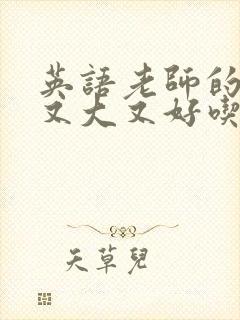 英語老師的
又大又好喫
天草兒